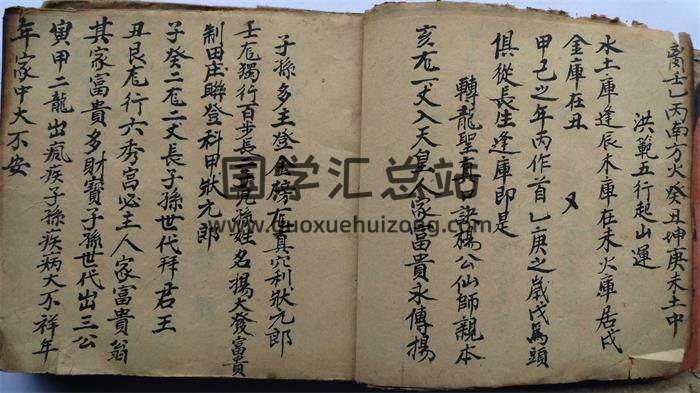 離壬乙丙南方火癸丑坤庚未土中
洪範五行起山運
水土庫逢辰木庫在未火庫居戌
金庫在丑 又
甲己之年丙作首乙庚之歲戊為頭
俱從長生逢庫即是
轉龍聖真口訣楊公仙師親本
亥龙一丈入天皇人家富貴永傳揚
子孫多主登金榜有真穴利狀元郎
壬龙獨行百步長三子兒孫姓名揚大發富貴
制田庄聯登科甲狀元郎
子癸二龙二丈長子孫世代拜君王
丑艮龙行六秀宮必主人家富貴翁
其家富貴多財寶子孫世代出三公
寅甲二龍出瘋疾子孫疾病大不祥年
年家中大不安
国学汇总站
www.guoxuehuizong.com